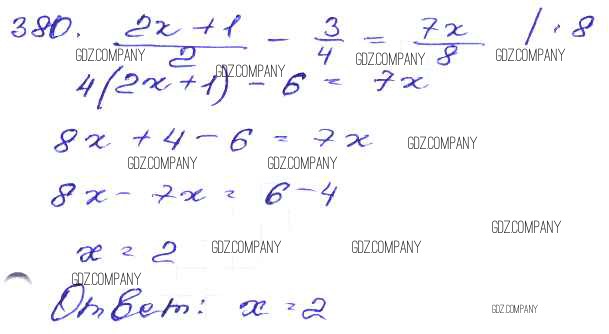 380. (2x + 1)/2 - 3/4 = 7x/8 / · 8
GDZ.COMPANY GDZ.COMPANY GDZ.COMPANY GDZ.COMPANY
4(2x+1) - 6 = 7x
8x + 4 - 6 = 7x GDZ.COMPANY
GDZ.COMPANY GDZ.COMPANY
8x - 7x = 6 - 4
GDZ.COMPANY
x = 2 GDZ.COMPANY GDZ.COMPANY
GDZ.COMPANY
Ответ: x = 2 GDZ.COMPANY